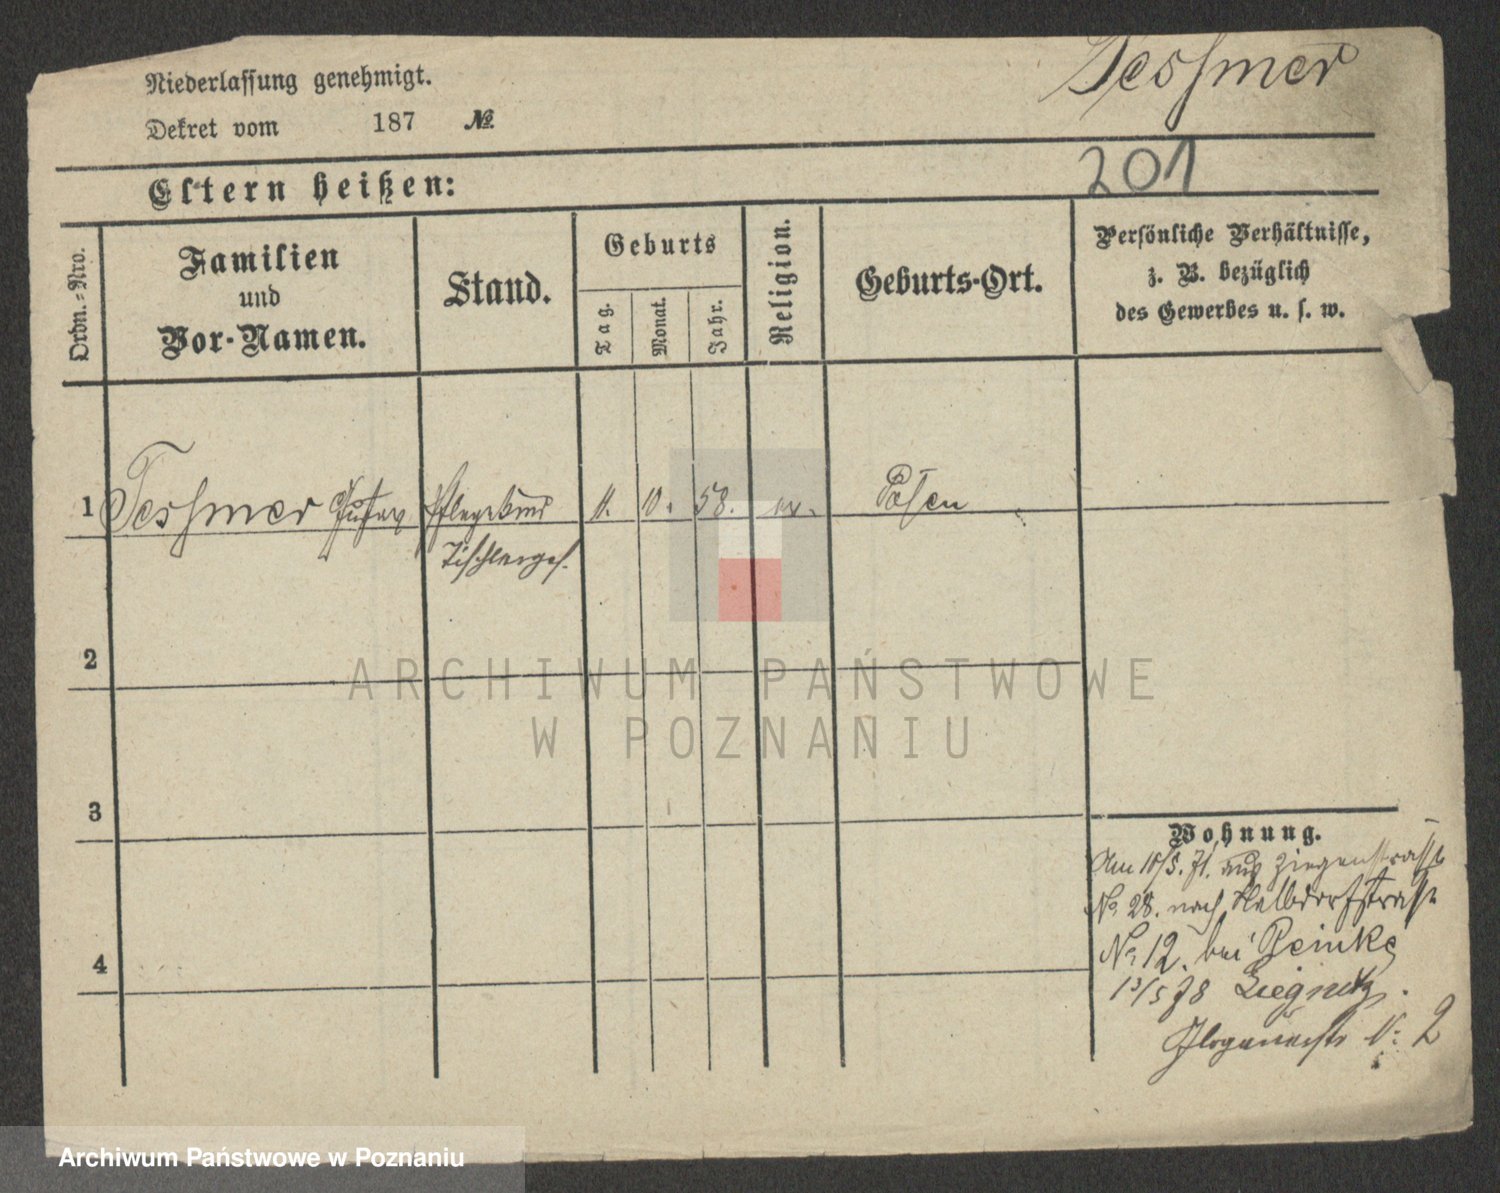 Teshmer
Niederlassung genehmigt.
Dekret vom 187 №
201
Eltern heißen:
Ordn.=Nro.
Familien
und
Vor-Namen.
Stand.
Geburts
Tag.
Monat.
Jahr.
Religion.
Geburts-Ort.
Persönliche Verhältnisse,
z. B. bezüglich
des Gewerbes u. s. w.
1 Teshmer Gustav Pflegekind 11. 10. 58. ev. Posen
Tischlerges.
2
3
4
Wohnung.
Am 10/5. 71. aus Ziegenstrasse
No. 28. nach Halbdorfstrasse
No. 12. bei Reinke
13/5 78 Liegnitz.
No 2
ARCHIWUM PAŃSTWOWE
W POZNANIU
Archiwum Państwowe w Poznaniu